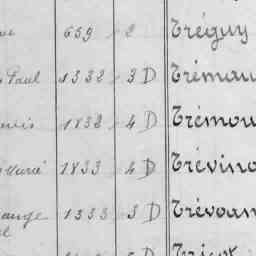 659 2 Tréguy
Paul 1332 3 D Trémau
1832 4 D Trémou
1833 4 D Trévino
ange 1333 3 D Trévoan